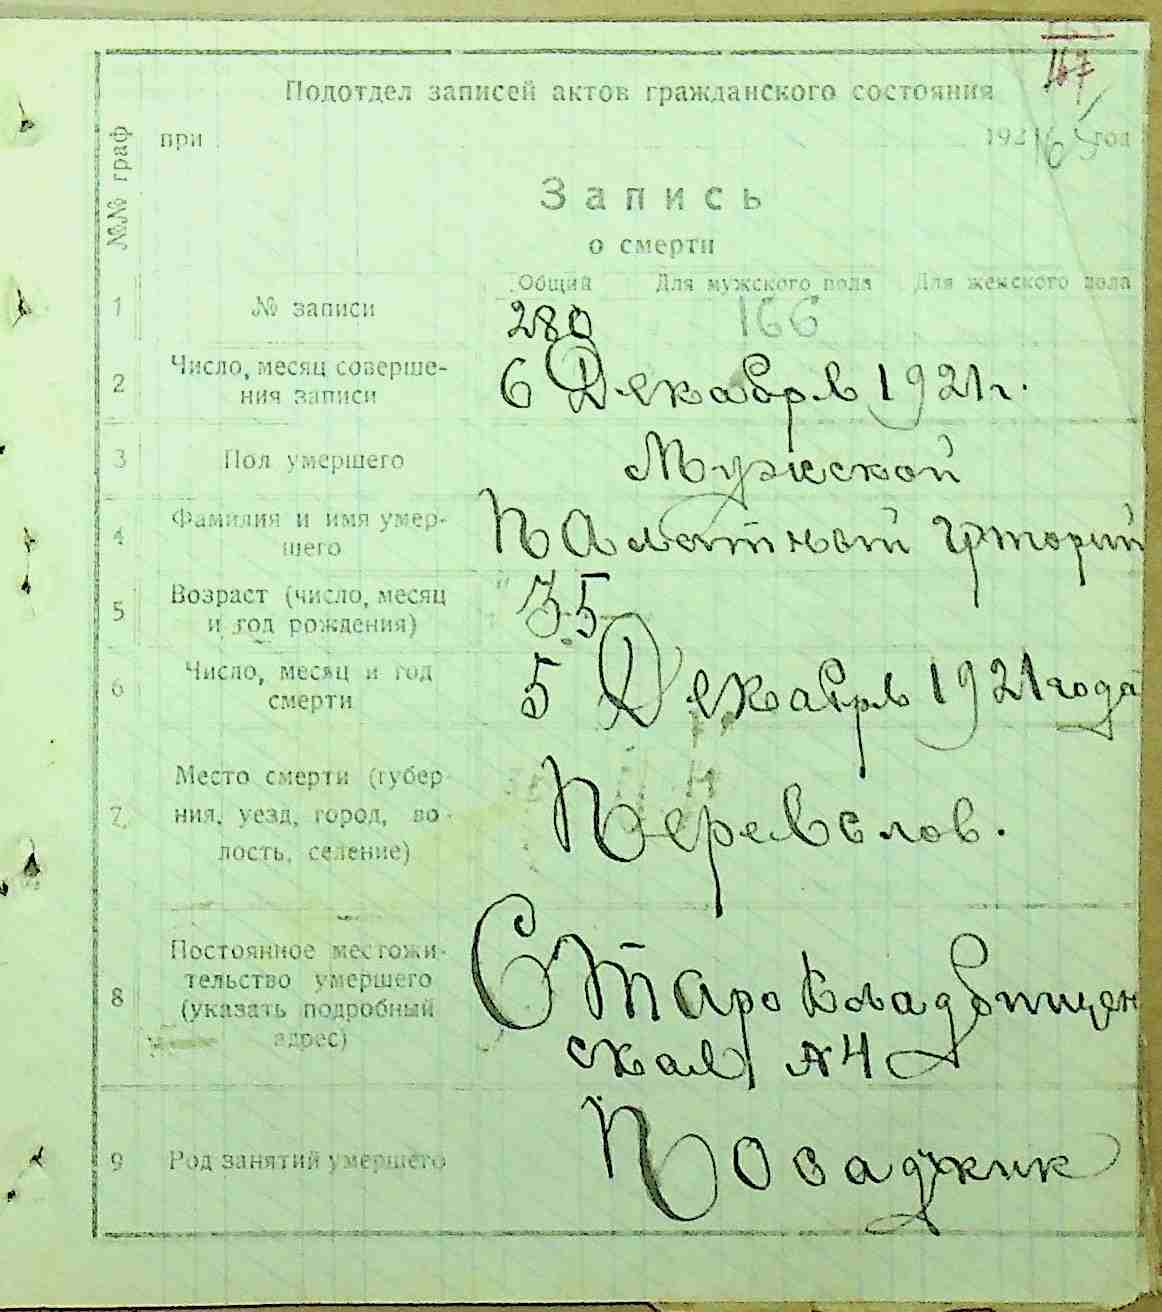 167
Подотдел записей актов гражданского состояния
№№ граф
при 192 год
Запись
о смерти
Общий Для мужского пола Для женского пола
1 № записи 280 166
2 Число, месяц соверше-
ния записи 6 Декабрь 1921 г.
3 Пол умершего Мужской
4 Фамилия и имя умер-
шего
5 Возраст (число, месяц
и год рождения) 35
6 Число, месяц и год
смерти 5 Декабрь 1921 года
7 Место смерти (губер-
ния, уезд, город, во-
лость, селение)
8 Постоянное местожи-
тельство умершего
(указать подробный
адрес) Старо Кладбищен
ская № 4
9 Род занятий умершего